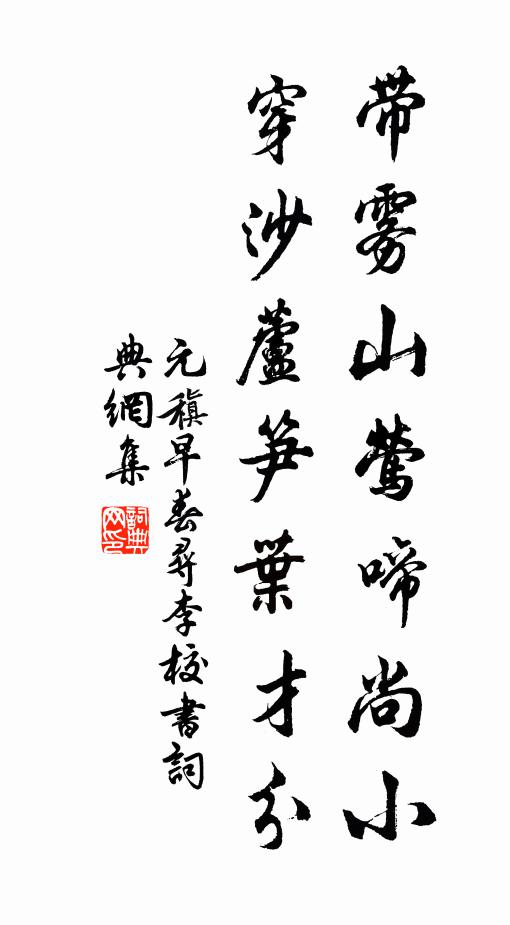 带雾山莺啼尚小
穿沙蘆笋葉才分
元稹早春尋李校書詞
典網集
詞典
网印